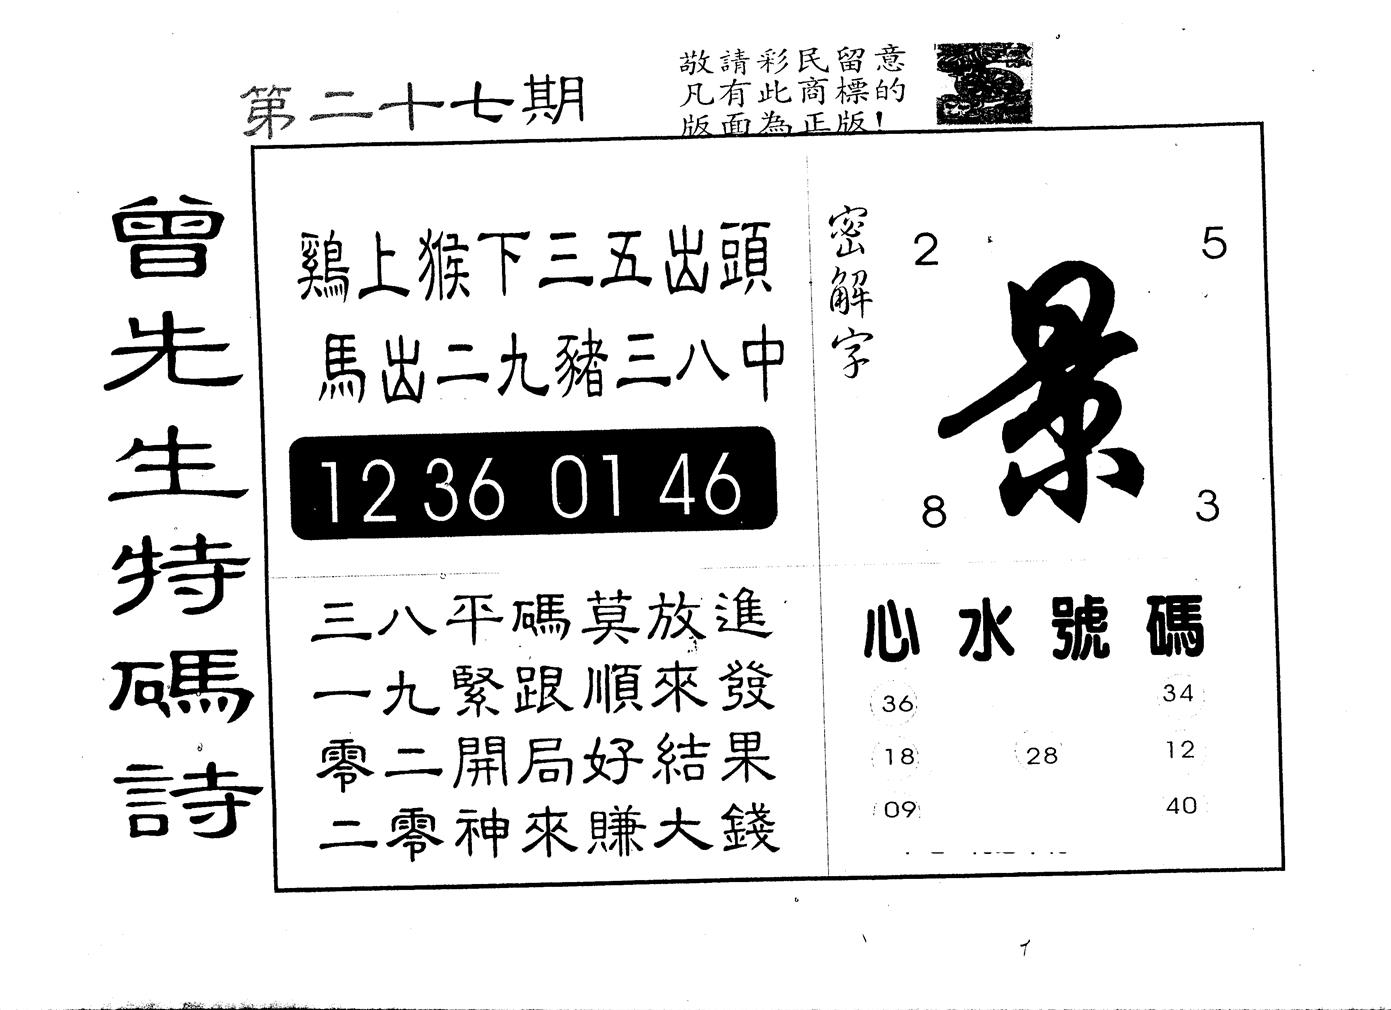 第二十七期
敬請彩民留意
凡有此商標的
版面為正版!
曾先生特碼詩
鷄上猴下三五出頭
馬出二九豬三八中
12 36 01 46
三八平碼莫放進
一九緊跟順來發
零二開局好結果
二零神來賺大錢
密解字
2 5
景
8 3
心水號碼
36 34
18 28 12
09 40